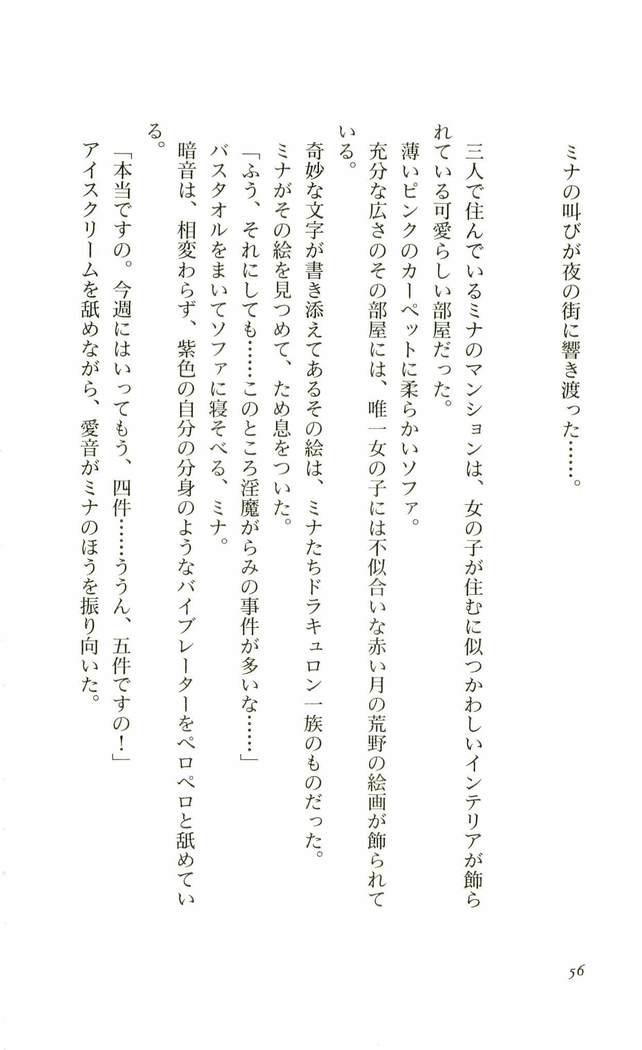 ミナの叫びが夜の街に響き渡った……。
三人で住んでいるミナのマンションは、女の子が住むに似つかわしいインテリアが飾ら
れている可愛らしい部屋だった。
薄いピンクのカーペットに柔らかいソファ。
充分な広さのその部屋には、唯一女の子には不似合いな赤い月の荒野の絵画が飾られて
いる。
奇妙な文字が書き添えてあるその絵は、ミナたちドラキュロン一族のものだった。
ミナがその絵を見つめて、ため息をついた。
「ふう、それにしても……このところ淫魔がらみの事件が多いな……」
バスタオルをまいてソファに寝そべる、ミナ。
暗音は、相変わらず、紫色の自分の分身のようなバイブレーターをペロペロと舐めてい
る。
「本当ですの。今週にはいってもう、四件……ううん、五件ですの！」
アイスクリームを舐めながら、愛音がミナのほうを振り向いた。
56